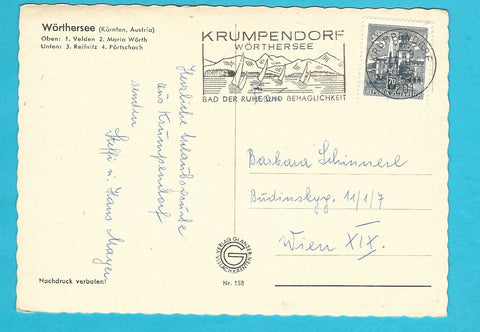 Wörthersee (Kärnten, Austria)
Oben: 1. Velden 2. Maria Wörth
Unten: 3. Reifnitz 4. Pörtschach
KRUMPENDORF
WÖRTHERSEE
BAD DER RUHE UND BEHAGLICHKEIT
Herzliche Urlaubsgrüße
aus Krumpendorf
senden
Steffi u. Hans Mayer
Barbara Schinnerl
Budinskyg. 11/1/7
Wien XIX.
VERLAG GLANZER
VILLACH KÄRNTEN
Nachdruck verboten!
Nr. 158